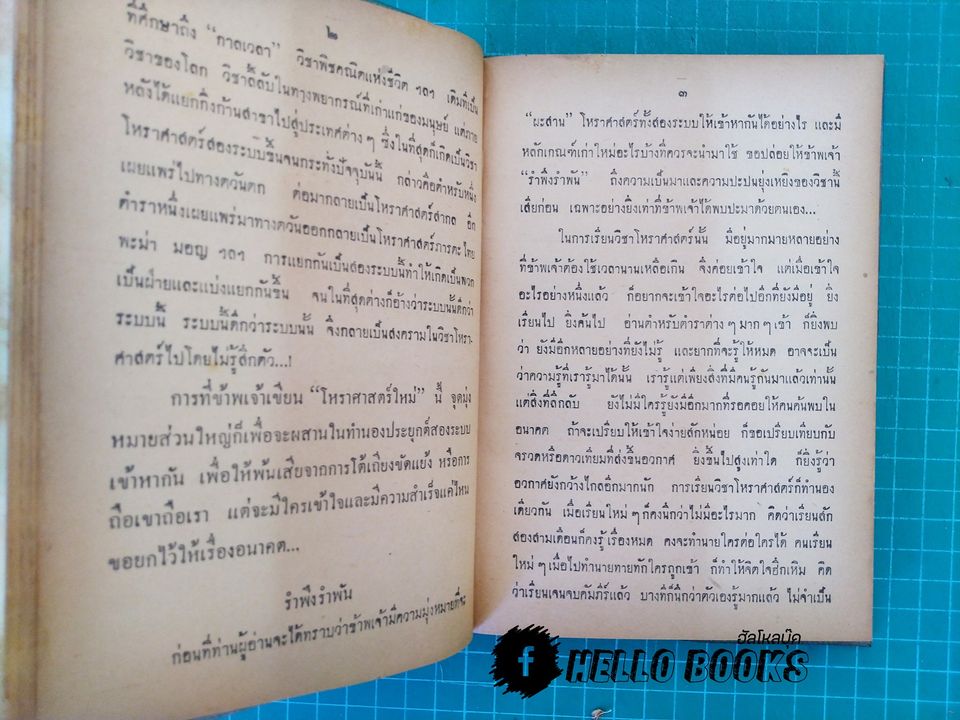 ๒
ที่ศึกษาถึง “กาลเวลา” วิชาพิชคณิตแห่งชีวิต ฯลฯ เดิมทีเป็น
วิชาของโลก วิชาลี้ลับในทางพยากรณ์ที่เก่าแก่ของมนุษย์ แต่ภาย
หลังได้แยกกิ่งก้านสาขาไปสู่ประเทศต่าง ๆ ซึ่งในที่สุดก็เกิดเป็นวิชา
โหราศาสตร์สองระบบขึ้นจนกระทั่งปัจจุบันนี้ กล่าวคือตำหรับหนึ่ง
เผยแพร่ไปทางตวันตก ต่อมากลายเป็นโหราศาสตร์สากล อีก
ตำราหนึ่งเผยแพร่มาทางตวันออกกลายเป็นโหราศาสตร์ภารตะ ไทย
พะม่า มอญ ฯลฯ การแยกกันเป็นสองระบบนี้ทำให้เกิดเป็นพวก
เป็นฝ่ายและแบ่งแยกกันขึ้น จนในที่สุดต่างก็อ้างว่าระบบนั้นดีกว่า
ระบบนี้ ระบบนี้ดีกว่าระบบนั้น จึงกลายเป็นสงครามในวิชาโหรา-
ศาสตร์ไปโดยไม่รู้สึกตัว...!
การที่ข้าพเจ้าเขียน “โหราศาสตร์ใหม่” นี้ จุดมุ่ง
หมายส่วนใหญ่ก็เพื่อจะผสานในทำนองประยุกต์สองระบบ
เข้าหากัน เพื่อให้พ้นเสียจากการโต้เถียงขัดแย้ง หรือการ
ถือเขาถือเรา แต่จะมีใครเข้าใจและมีความสำเร็จแค่ไหน
ขอยกไว้ให้เรื่องอนาคต...
รำพึงรำพัน
ก่อนที่ท่านผู้อ่านจะได้ทราบว่าข้าพเจ้ามีความมุ่งหมายที่จะ
๓
“ผะสาน” โหราศาสตร์ทั้งสองระบบให้เข้าหากันได้อย่างไร และมี
หลักเกณฑ์เก่าใหม่อะไรบ้างที่ควรจะนำมาใช้ ขอปล่อยให้ข้าพเจ้า
“รำพึงรำพัน” ถึงความเป็นมาและความปะปนยุ่งเหยิงของวิชานี้
เสียก่อน เฉพาะอย่างยิ่งเท่าที่ข้าพเจ้าได้พบปะมาด้วยตนเอง...
ในการเรียนวิชาโหราศาสตร์นั้น มีอยู่มากมายหลายอย่าง
ที่ข้าพเจ้าต้องใช้เวลานานเหลือเกิน จึงค่อยเข้าใจ แต่เมื่อเข้าใจ
อะไรอย่างหนึ่งแล้ว ก็อยากจะเข้าใจอะไรต่อไปอีกที่ยังมีอยู่ ยิ่ง
เรียนไป ยิ่งค้นไป อ่านตำหรับตำราต่าง ๆ มาก ๆ เข้า ก็ยิ่งพบ
ว่า ยังมีอีกหลายอย่างที่ยังไม่รู้ และยากที่จะรู้ให้หมด อาจจะเป็น
ว่าความรู้ที่เรารู้มาได้นั้น เรารู้แต่เพียงสิ่งที่มีคนรู้กันมาแล้วเท่านั้น
แต่สิ่งที่ลึกลับ ยังไม่มีใครรู้ยังมีอีกมากที่รอคอยให้คนค้นพบใน
อนาคต ถ้าจะเปรียบให้เข้าใจง่ายสักหน่อย ก็ขอเปรียบเทียบกับ
จรวดหรือดาวเทียมที่ส่งขึ้นอวกาศ ยิ่งขึ้นไปสูงเท่าใด ก็ยิ่งรู้ว่า
อวกาศยังกว้างไกลอีกมากนัก การเรียนวิชาโหราศาสตร์ก็ทำนอง
เดียวกัน เมื่อเรียนใหม่ ๆ ก็คงนึกว่าไม่มีอะไรมาก คิดว่าเรียนสัก
สองสามเดือนก็คงรู้เรื่องหมด คงจะทำนายใครต่อใครได้ คนเรียน
ใหม่ ๆ เมื่อไปทำนายทายทักใครถูกเข้า ก็ทำให้จิตใจฮึกเหิม คิด
ว่าเรียนเจนจบคัมภีร์แล้ว บางทีก็นึกว่าตัวเองรู้มากแล้ว ไม่จำเป็น
ฮัลโหลบุ๊ค
f HELLO BOOKS